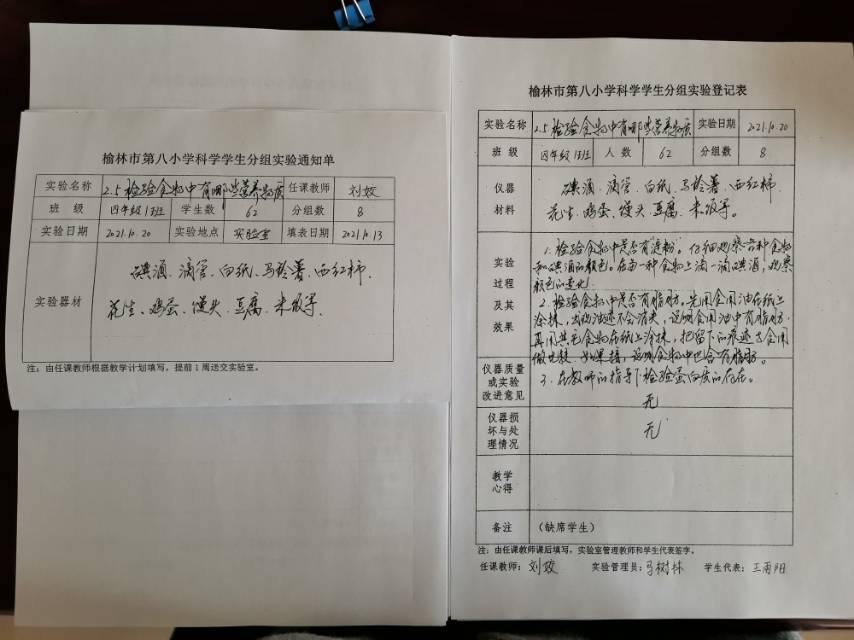 榆林市第八小学科学学生分组实验通知单
实验名称 2.5检验食物中有哪些营养物质 任课教师 刘姣
班 级 四年级13班 学生数 62 分组数 8
实验日期 2021.10.20 实验地点 实验室 填表日期 2021.10.13
实验器材
碘酒、滴管、白纸、马铃薯、西红柿、
花生、鸡蛋、馒头、豆腐、米饭等
注：由任课教师根据教学计划填写，提前1周送交实验室。
榆林市第八小学科学学生分组实验登记表
实验名称 2.5检验食物中有哪些营养物质 实验日期 2021.10.20
班 级 四年级13班 人 数 62 分组数 8
仪器
材料
碘酒、滴管、白纸、马铃薯、西红柿、
花生、鸡蛋、馒头、豆腐、米饭等。
实验
过程
及其
效果
1.检验食物中是否有淀粉。仔细观察各种食物
和碘酒的颜色。在每一种食物上滴一滴碘酒，观察
颜色的变化。
2.检验食物中是否有脂肪。先用食用油在纸上
涂抹，油迹不会消失，说明食用油中有脂肪。
再用其它食物在纸上涂抹，把留下的痕迹与食用
做比较，说明食物中也含有脂肪。
3.在教师的指导下检验蛋白质的存在。
仪器质量
或实验
改进意见
无
仪器损
坏与处
理情况
无
教学
心得
备注 （缺席学生）
注：由任课教师课后填写，实验室管理教师和学生代表签字。
任课教师：刘姣 实验管理员：马树林 学生代表：王雨阳